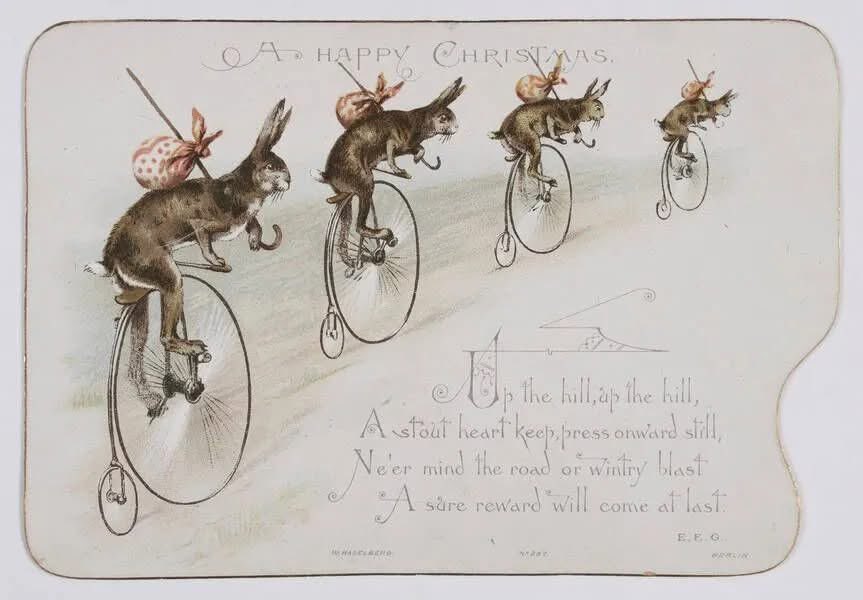 A HAPPY CHRISTMAS.
Up the hill, up the hill,
A stout heart keep, press onward still,
Ne'er mind the road or wintry blast
A sure reward will come at last.
E.E.G.
W. HAGELBERG. BERLIN